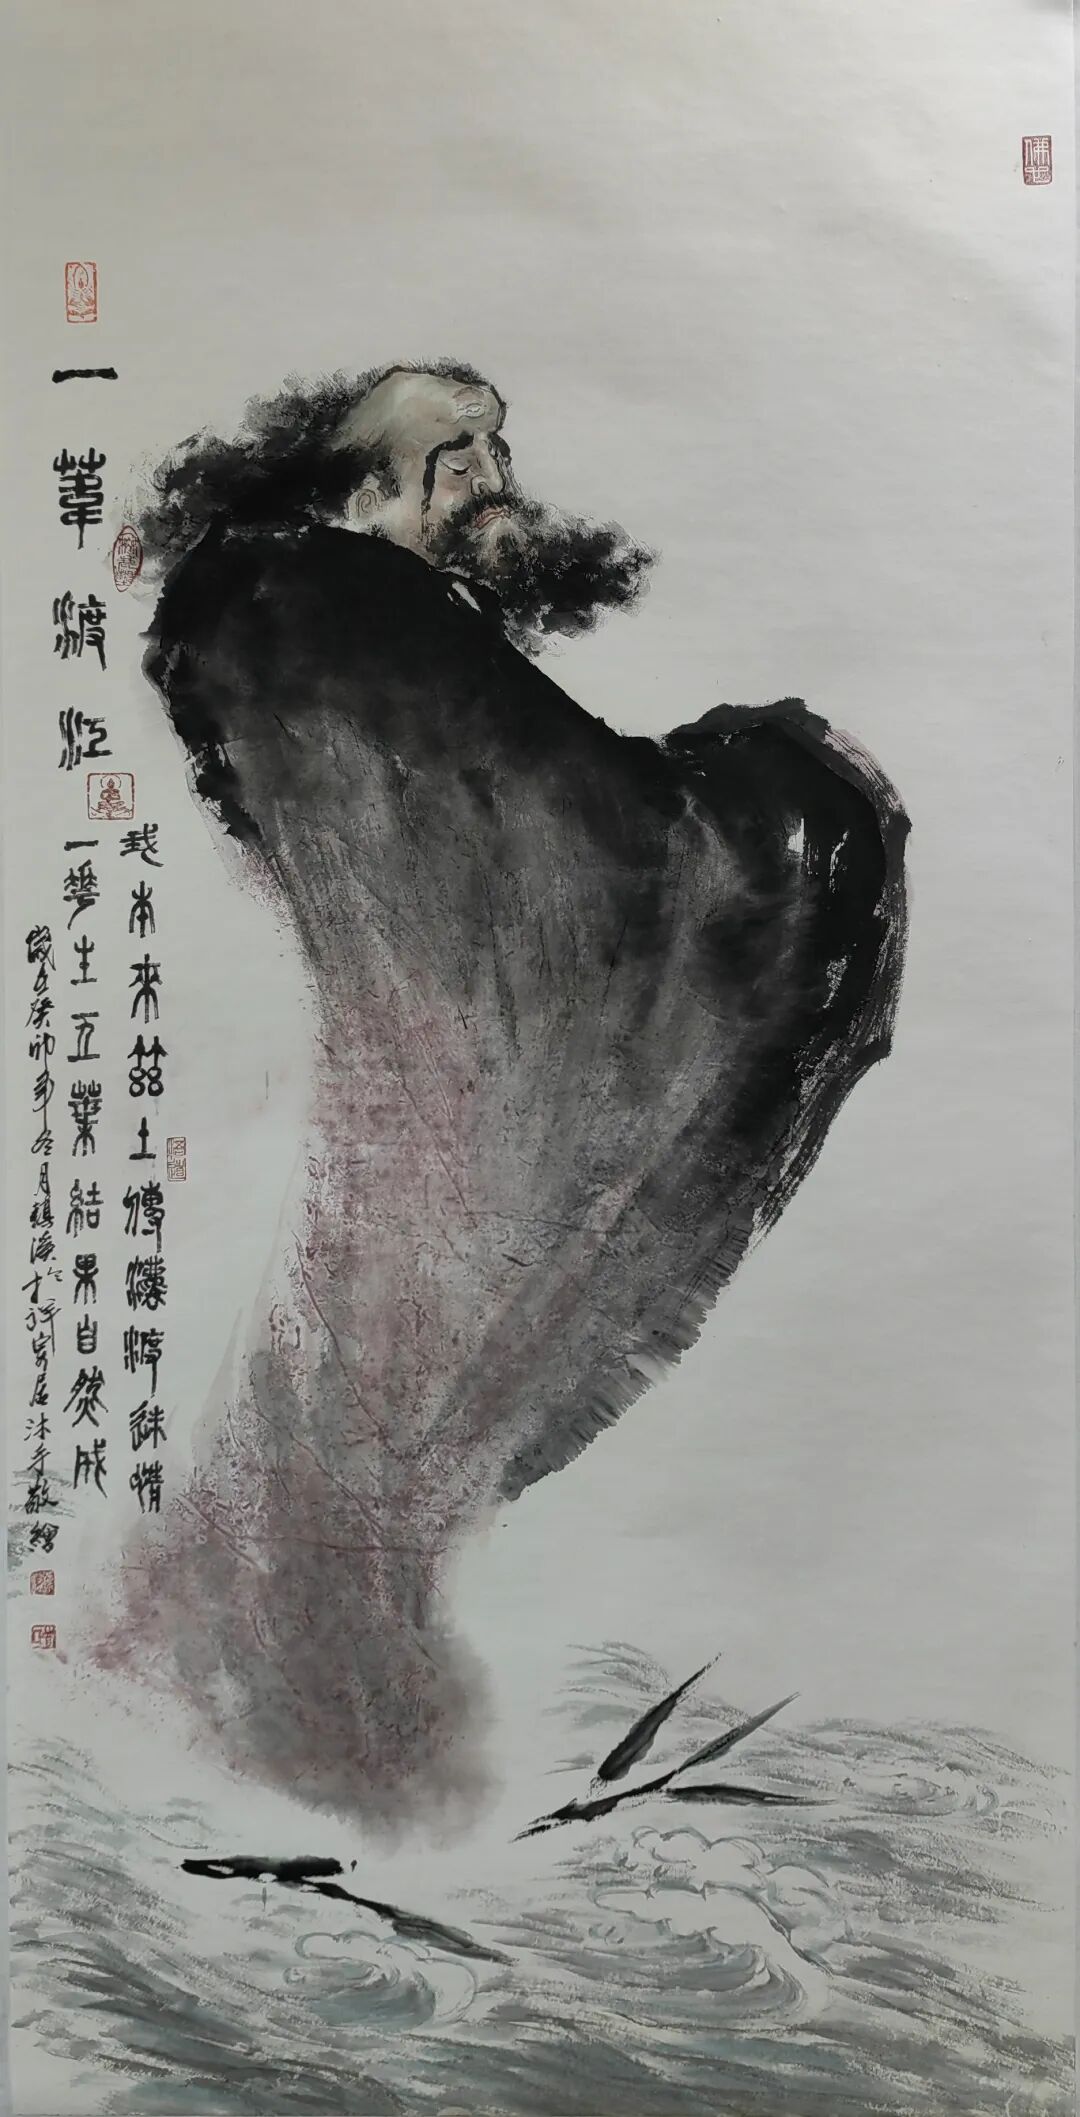 一葦渡江
我本來茲土傳灋渡迷情
一華生五葉結果自然成
歲在癸卯年冬月於寓居沐手敬繪